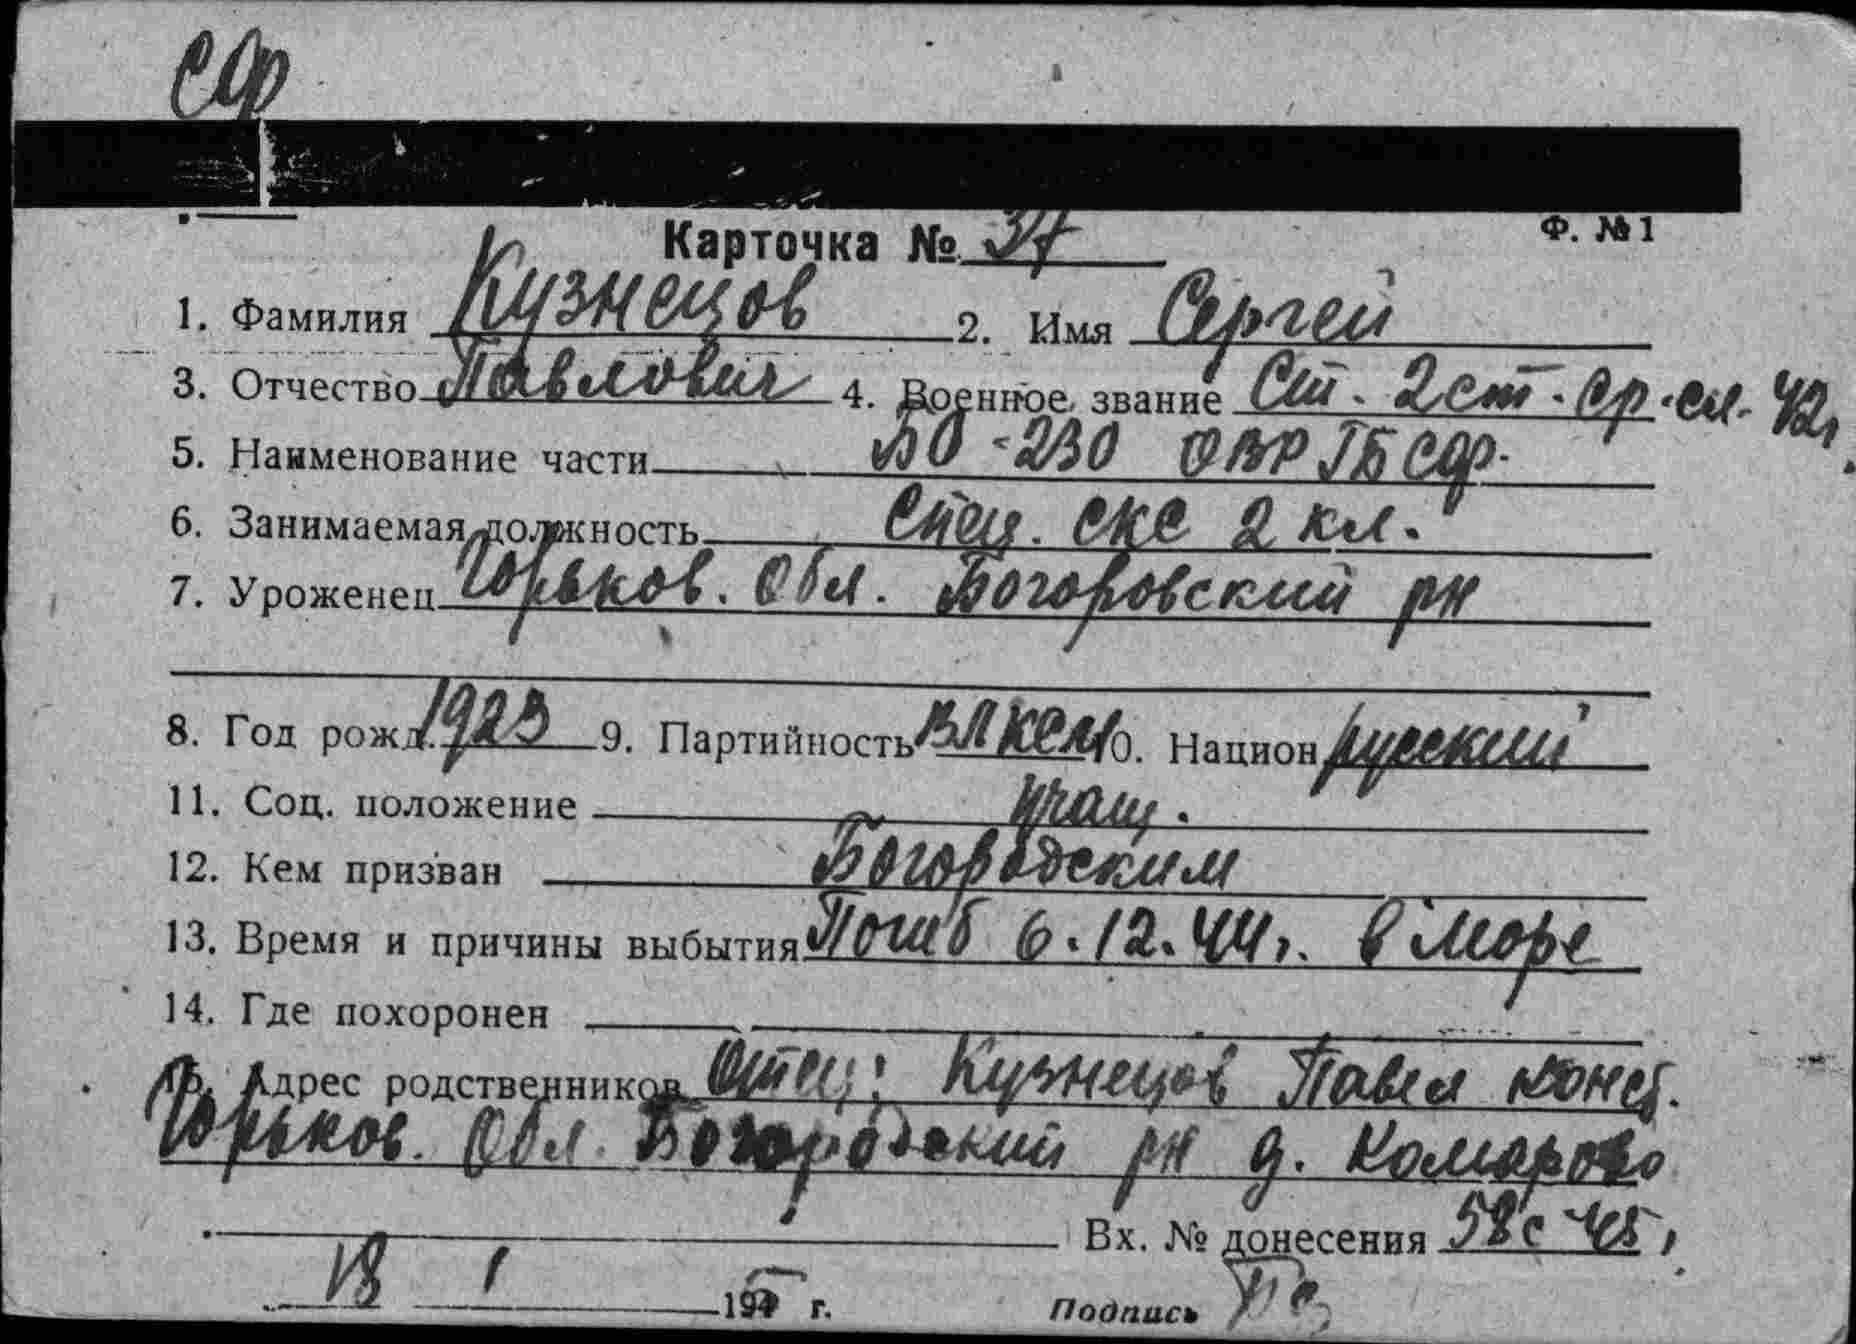 СФ
Карточка № 37 Ф. № 1
1. Фамилия Кузнецов 2. Имя Сергей
3. Отчество Павлович 4. Военное звание Ст. 2 ст. ср. сл. 42г.
5. Наименование части БО-230 ОВР ГБ СФ.
6. Занимаемая должность Спец. СКС 2 кл.
7. Уроженец Горьков. Обл. Богоровский рн
8. Год рожд. 1923 9. Партийность ВЛКСМ 10. Национ русский
11. Соц. положение учащ.
12. Кем призван Богородским
13. Время и причины выбытия Погиб 6.12.44г. в море
14. Где похоронен
15. Адрес родственников Отец: Кузнецов Павел Конст.
Горьков. Обл. Богородский рн д. Комарово
Вх. № донесения 58с 45г
18 1 1945 г. Подпись